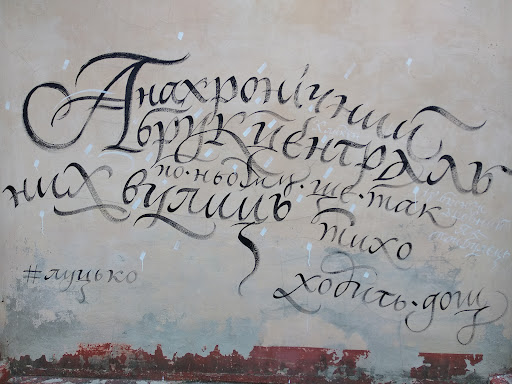 Анахронічний
брук централь
них вулиць
по·ньому·ще·так
тихо
ходить·дощ
#луцько